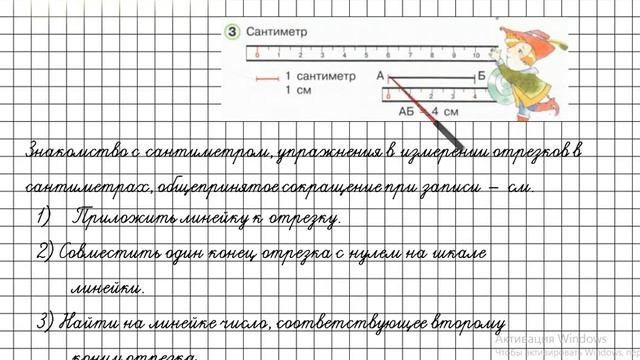 3 Сантиметр
0 1 2 3 4 5 6 7 8 9 10
1 сантиметр
1 см
А Б
0 1 2 3 4
АБ = 4 см
Знакомство с сантиметром, упражнения в измерении отрезков в
сантиметрах, общепринятое сокращение при записи – см.
1) Приложить линейку к отрезку.
2) Совместить один конец отрезка с нулем на шкале
линейки.
3) Найти на линейке число, соответствующее второму
концу отрезка.
Активация Windows
Чтобы активировать Windows, пер